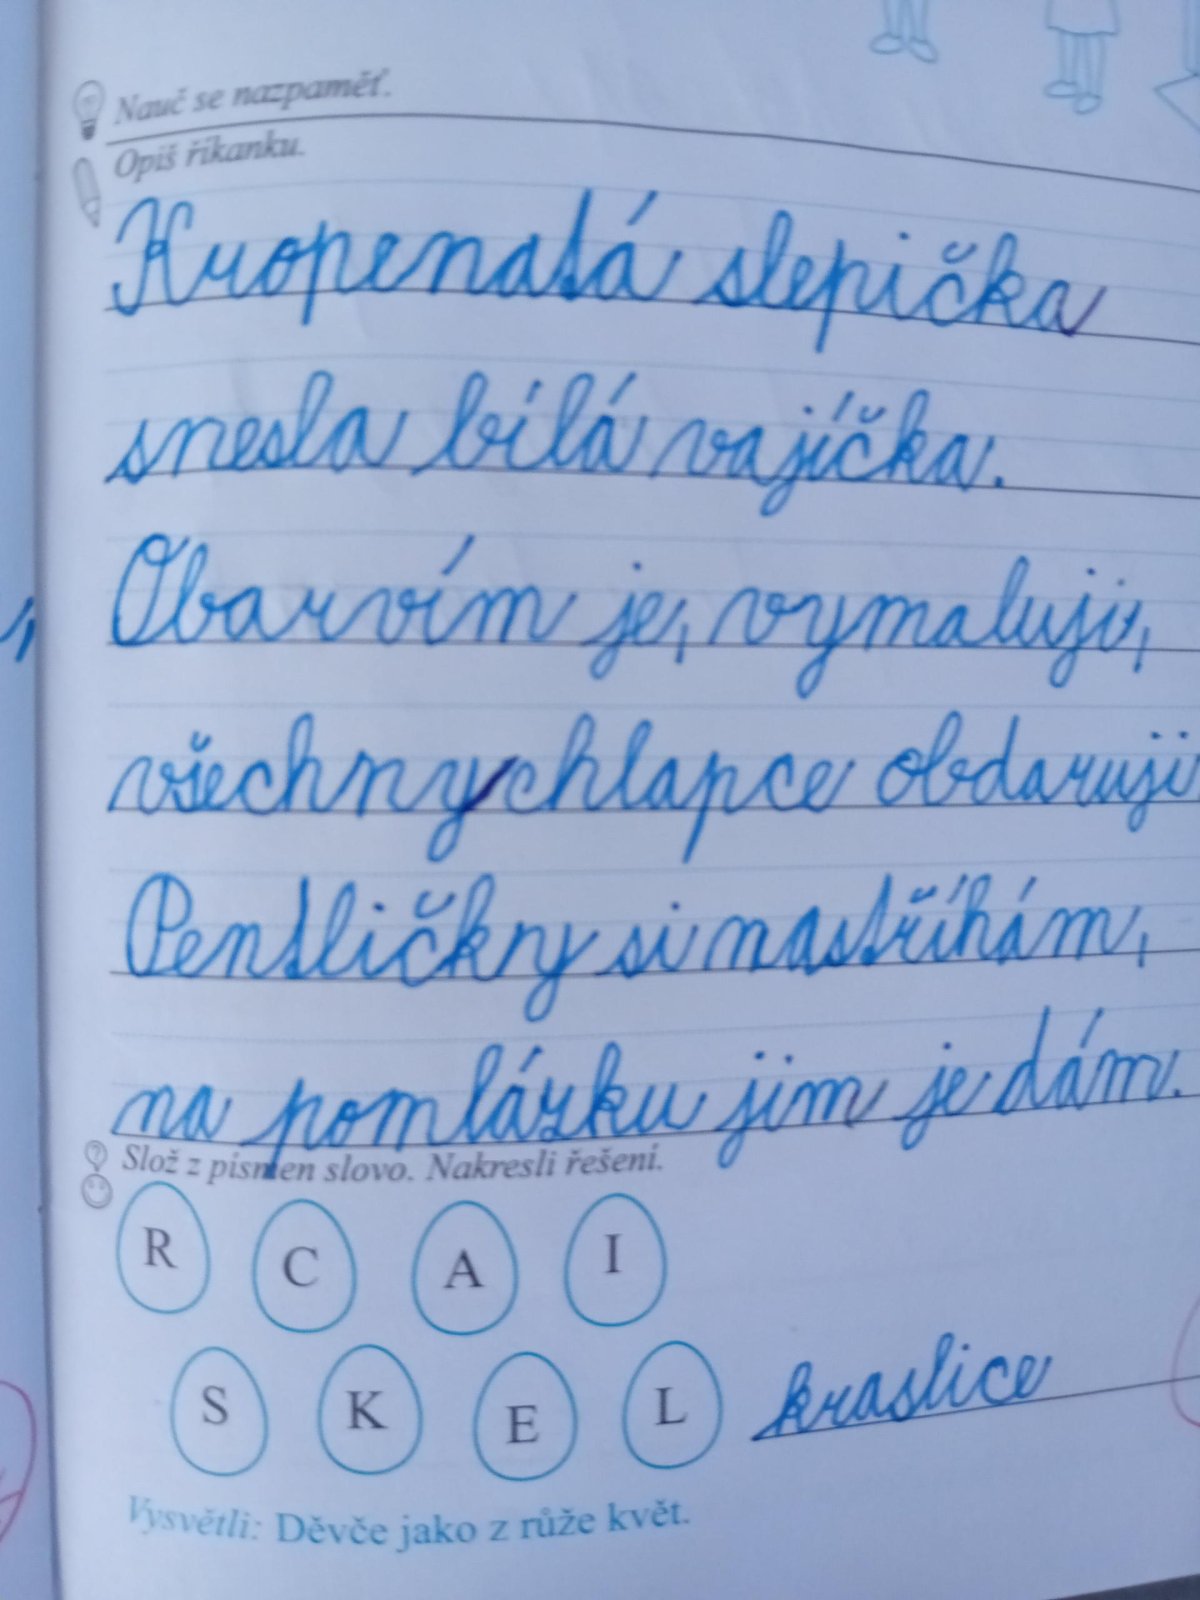 Nauč se nazpaměť.
Opiš říkanku.
Kropenatá slepička
snesla bílá vajíčka.
Obarvím je, vymaluji,
všechny chlapce obdaruji
Pentličky si nastříhám,
na pomlázku jim je dám.
Slož z písmen slovo. Nakresli řešení.
R C A I
S K E L kraslice
Vysvětli: Děvče jako z růže květ.